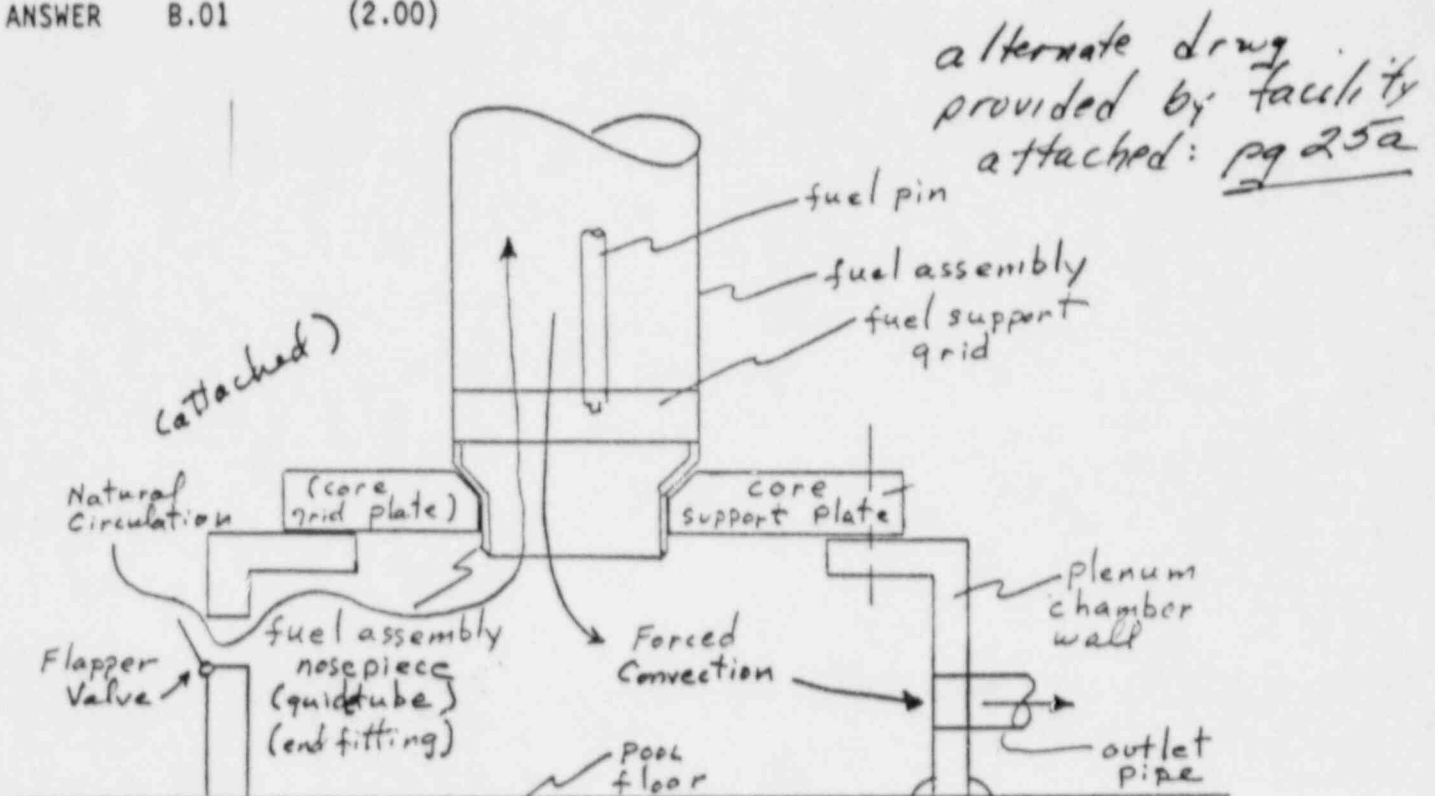 ANSWER B.01 (2.00)
alternate drwg
provided by facility
attached: pg 25a
fuel pin
fuel assembly
fuel support
grid
(attached)
Natural
Circulation
(core
grid plate)
core
support plate
plenum
chamber
wall
Flapper
Valve
fuel assembly
nosepiece
(guidetube)
(end fitting)
Forced
Convection
outlet
pipe
pool
floor